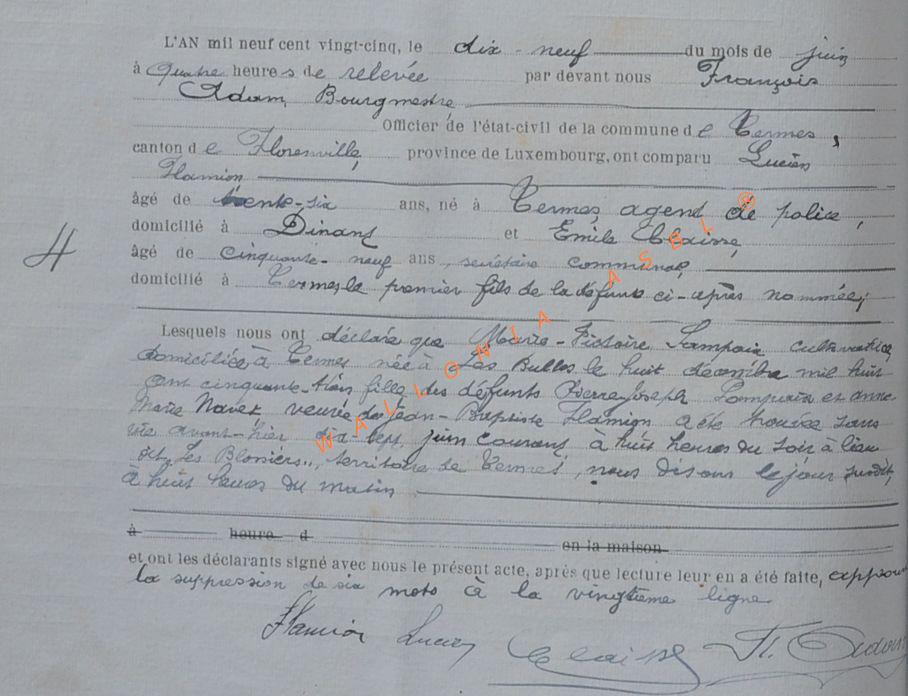 L'AN mil neuf cent vingt-cinq, le dix-neuf du mois de juin
à quatre heures de relevée par devant nous François
Adam, Bourgmestre
Officier de l'état-civil de la commune de Termes,
canton de Florenville, province de Luxembourg, ont comparu Lucien
Flamion
âgé de trente-six ans, né à Termes, agent de police,
domicilié à Dinant et Emile Claisse,
âgé de cinquante-neuf ans, secrétaire communal,
domicilié à Termes le premier fils de la défunte ci-après nommée;
4
Lesquels nous ont déclaré que Marie-Victoire Lampaix cultivatrice
domiciliée à Termes née à Les Bulles le huit décembre mil huit
cent cinquante-trois fille des défunts Pierre Joseph Lampaix et Anne
Marie Navet veuve de Jean-Baptiste Flamion a été trouvée sans
vie avant-hier dix-sept juin courant à huit heures du soir à lieu
dit "Les Blanciers", territoire de Termes, nous disons le jour susdit,
à huit heures du matin
à heure d en la maison
et ont les déclarants signé avec nous le présent acte, après que lecture leur en a été faite, approuvé
la suppression de six mots à la vingtième ligne
Flamion Lucien Claisse Fr. Adam
WALLONIA ASBL ®